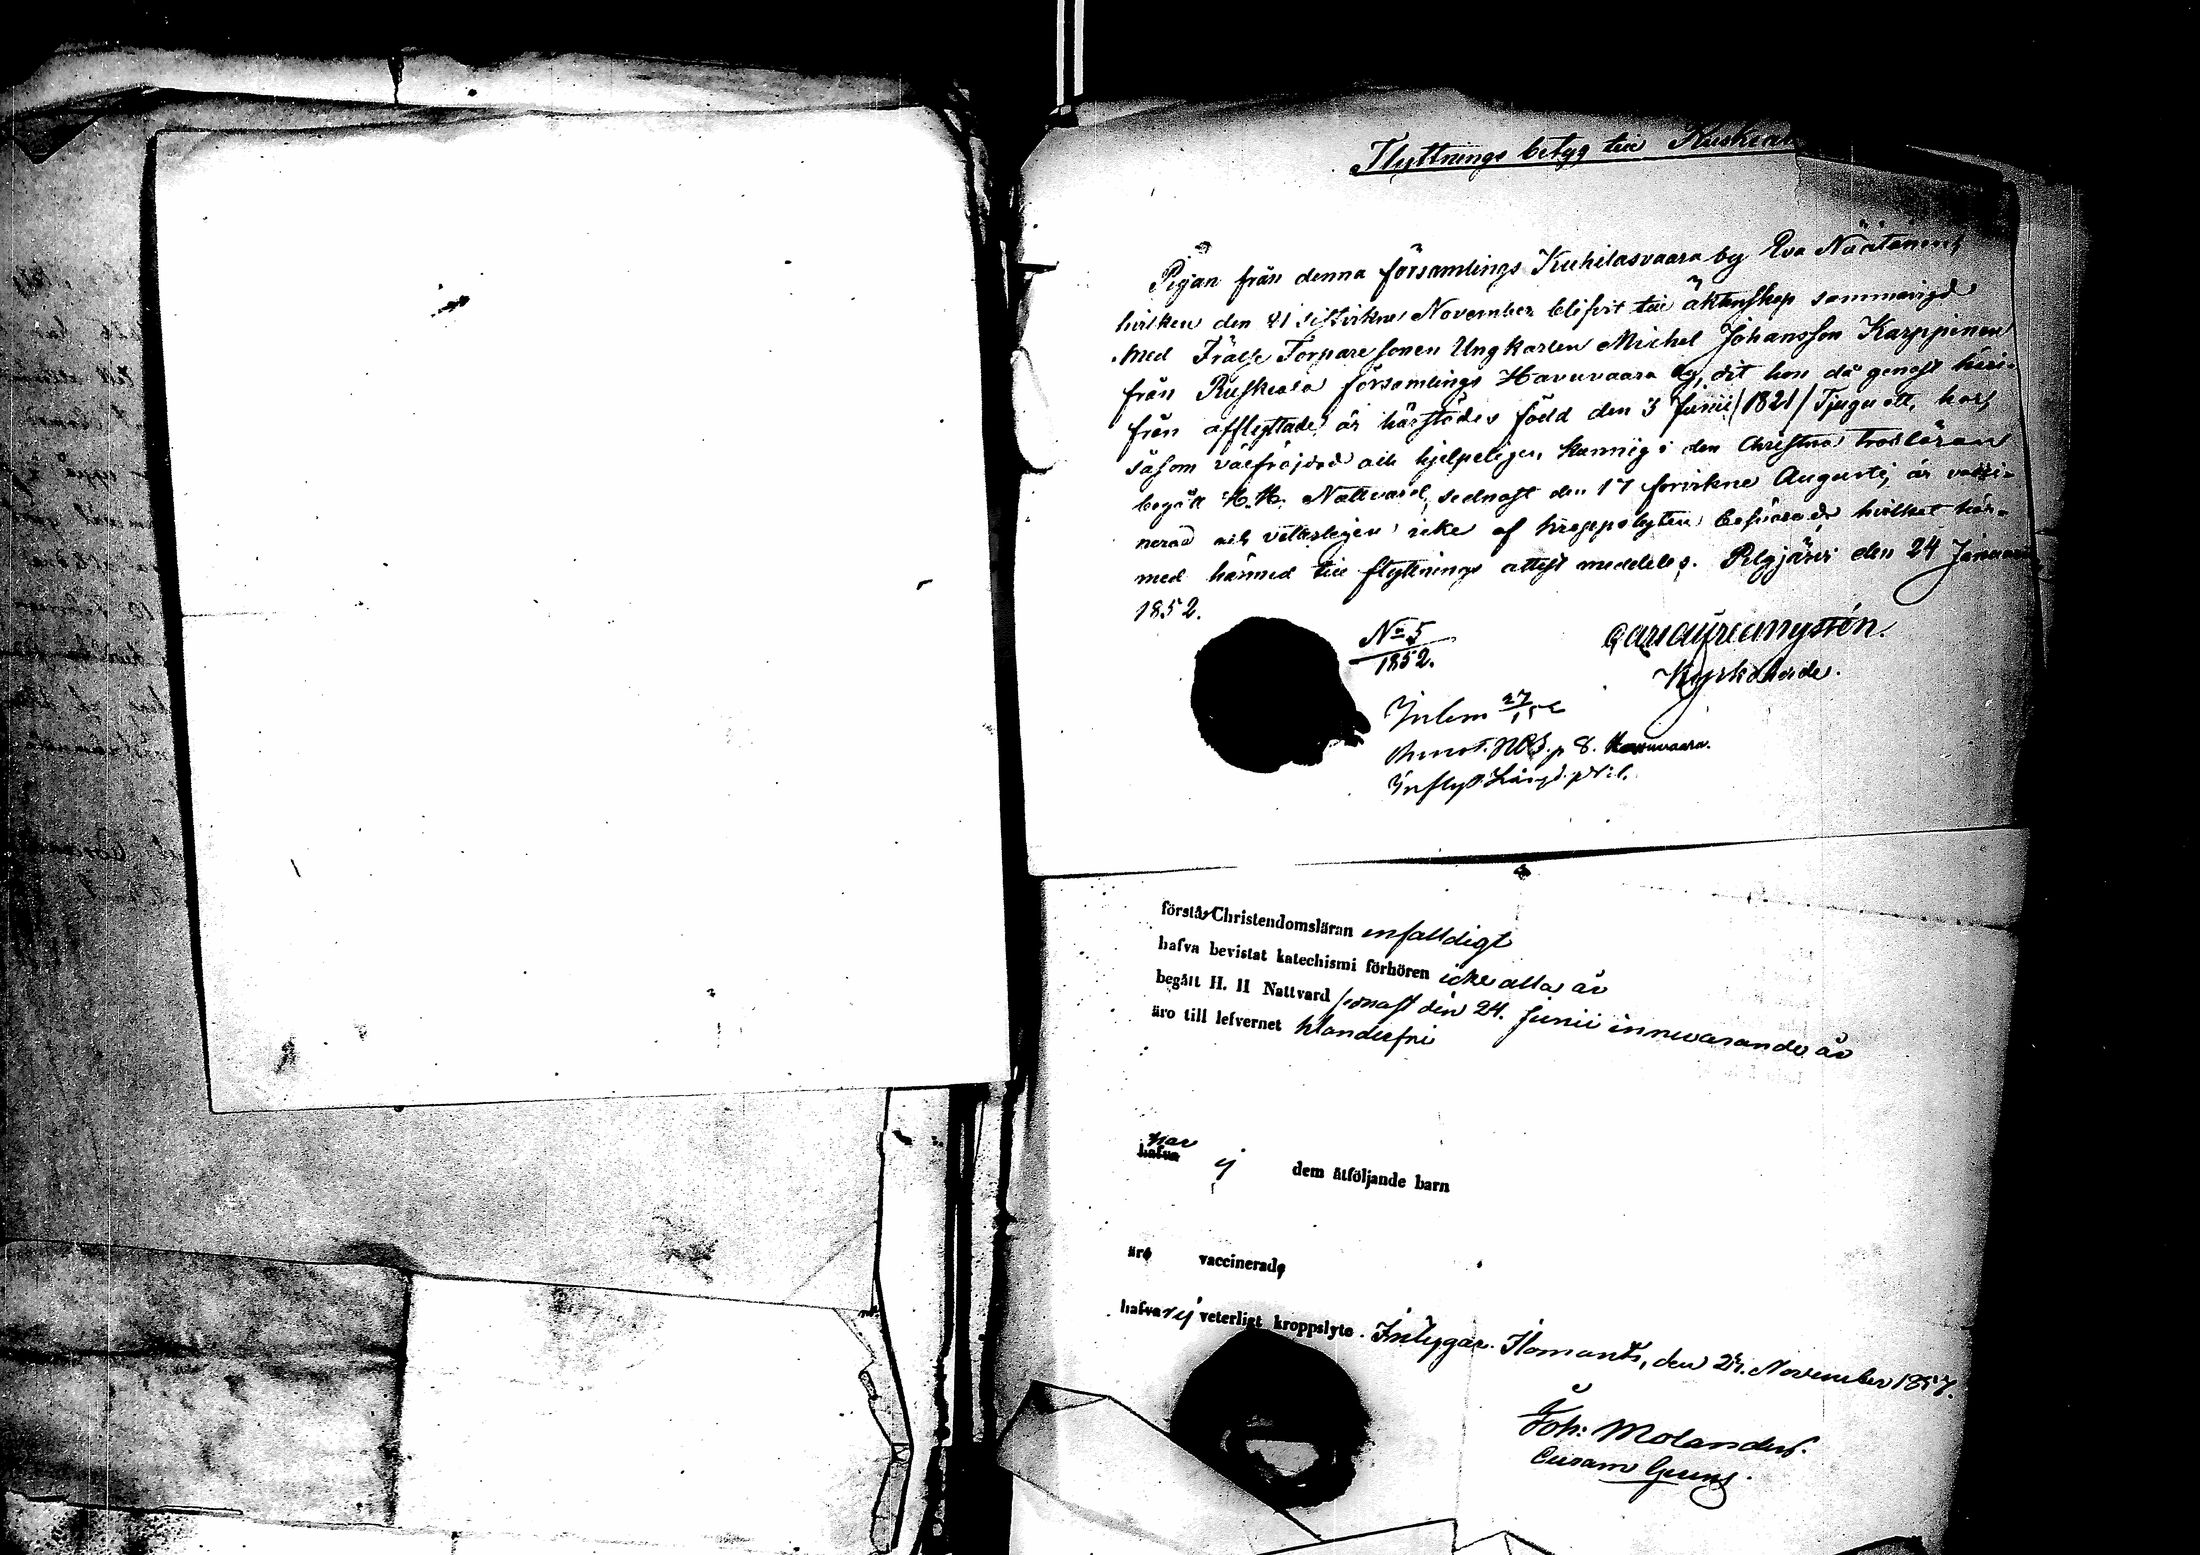 Flyttnings betyg till Ruskeala
Pigan från denna församlings Kuhilasvaara by Eva Näätänen,
hvilken den 21 sistvikne November blifvit till äktenskap sammanvigd
med Frälse Torpare sonen Ungkarlen Michel Johansson Karppinen
från Ruskeala församlings Havuvaara by, dit hon då genast häri-
från afflyttade, är härstädes född den 3 Junii /1821/ Tjugu ett, har,
såsom välfräjdad och hjelpeligen kunnig i den Christna trosläran
begått H. H. Nattvard, sednast den 17 förvikne Augusti, är vakci-
nerad och vitterligen icke af kroppslyten besvärad, hvilket här-
med härmed till flyttnings attest meddeles. Pelgjärvi den 24 Januarii
1852.
No 5
1852.
Kyrkoherde.
Inlem 27/1 52
Annot. NB. p 8. Havuvaara.
Inflyt. Längd. p
förstår Christendomsläran enfalldigt
hafva bevistat katechismi förhören icke alla år
begått H. H Nattvard senast den 24. Junii innevarande år
äro till lefvernet klanderfri
har
hafva ej dem åtföljande barn
äro vaccinerade
hafva ej veterligt kroppslyte. Intygar. Ilomants, den 24. November 1857.
Joh: Molander.